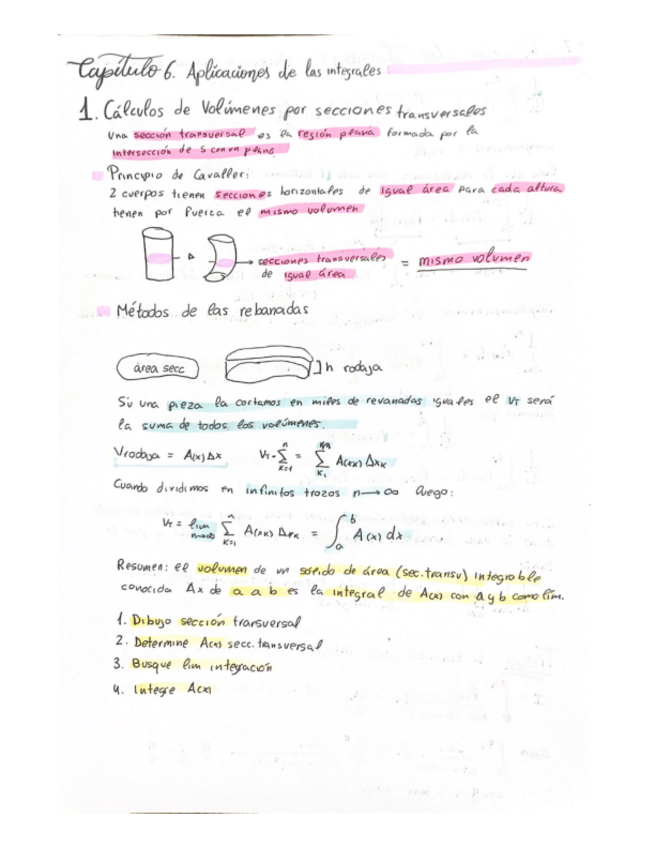 Capítulo 6. Aplicaciones de las integrales
1. Cálculos de Volúmenes por secciones transversales
Una sección transversal es la región plana formada por la
intersección de S con un plano.
Principio de Cavalier:
2 cuerpos tienen secciones horizontales de igual área para cada altura
tienen por fuerza el mismo volumen
secciones transversales = mismo volumen
de igual área
Métodos de las rebanadas
área secc
h rodaja
Si una pieza la cortamos en miles de revanadas iguales el VT será
la suma de todos los volúmenes.
Vrodaja = A(x) Δx VT = Σ = Σ A(xk) Δxk
Cuando dividimos en infinitos trozos n→∞ luego:
VT = lim n→∞ Σ n k=1 A(xk) Δxk = ∫ a b A(x) dx
Resumen: el volumen de un solido de área (sec. transv) integrable
conocida Ax de a a b es la integral de A(x) con a y b como lím.
1. Dibujo sección transversal
2. Determine A(x) secc. transversal
3. Busque lim integración
4. Integre A(x)